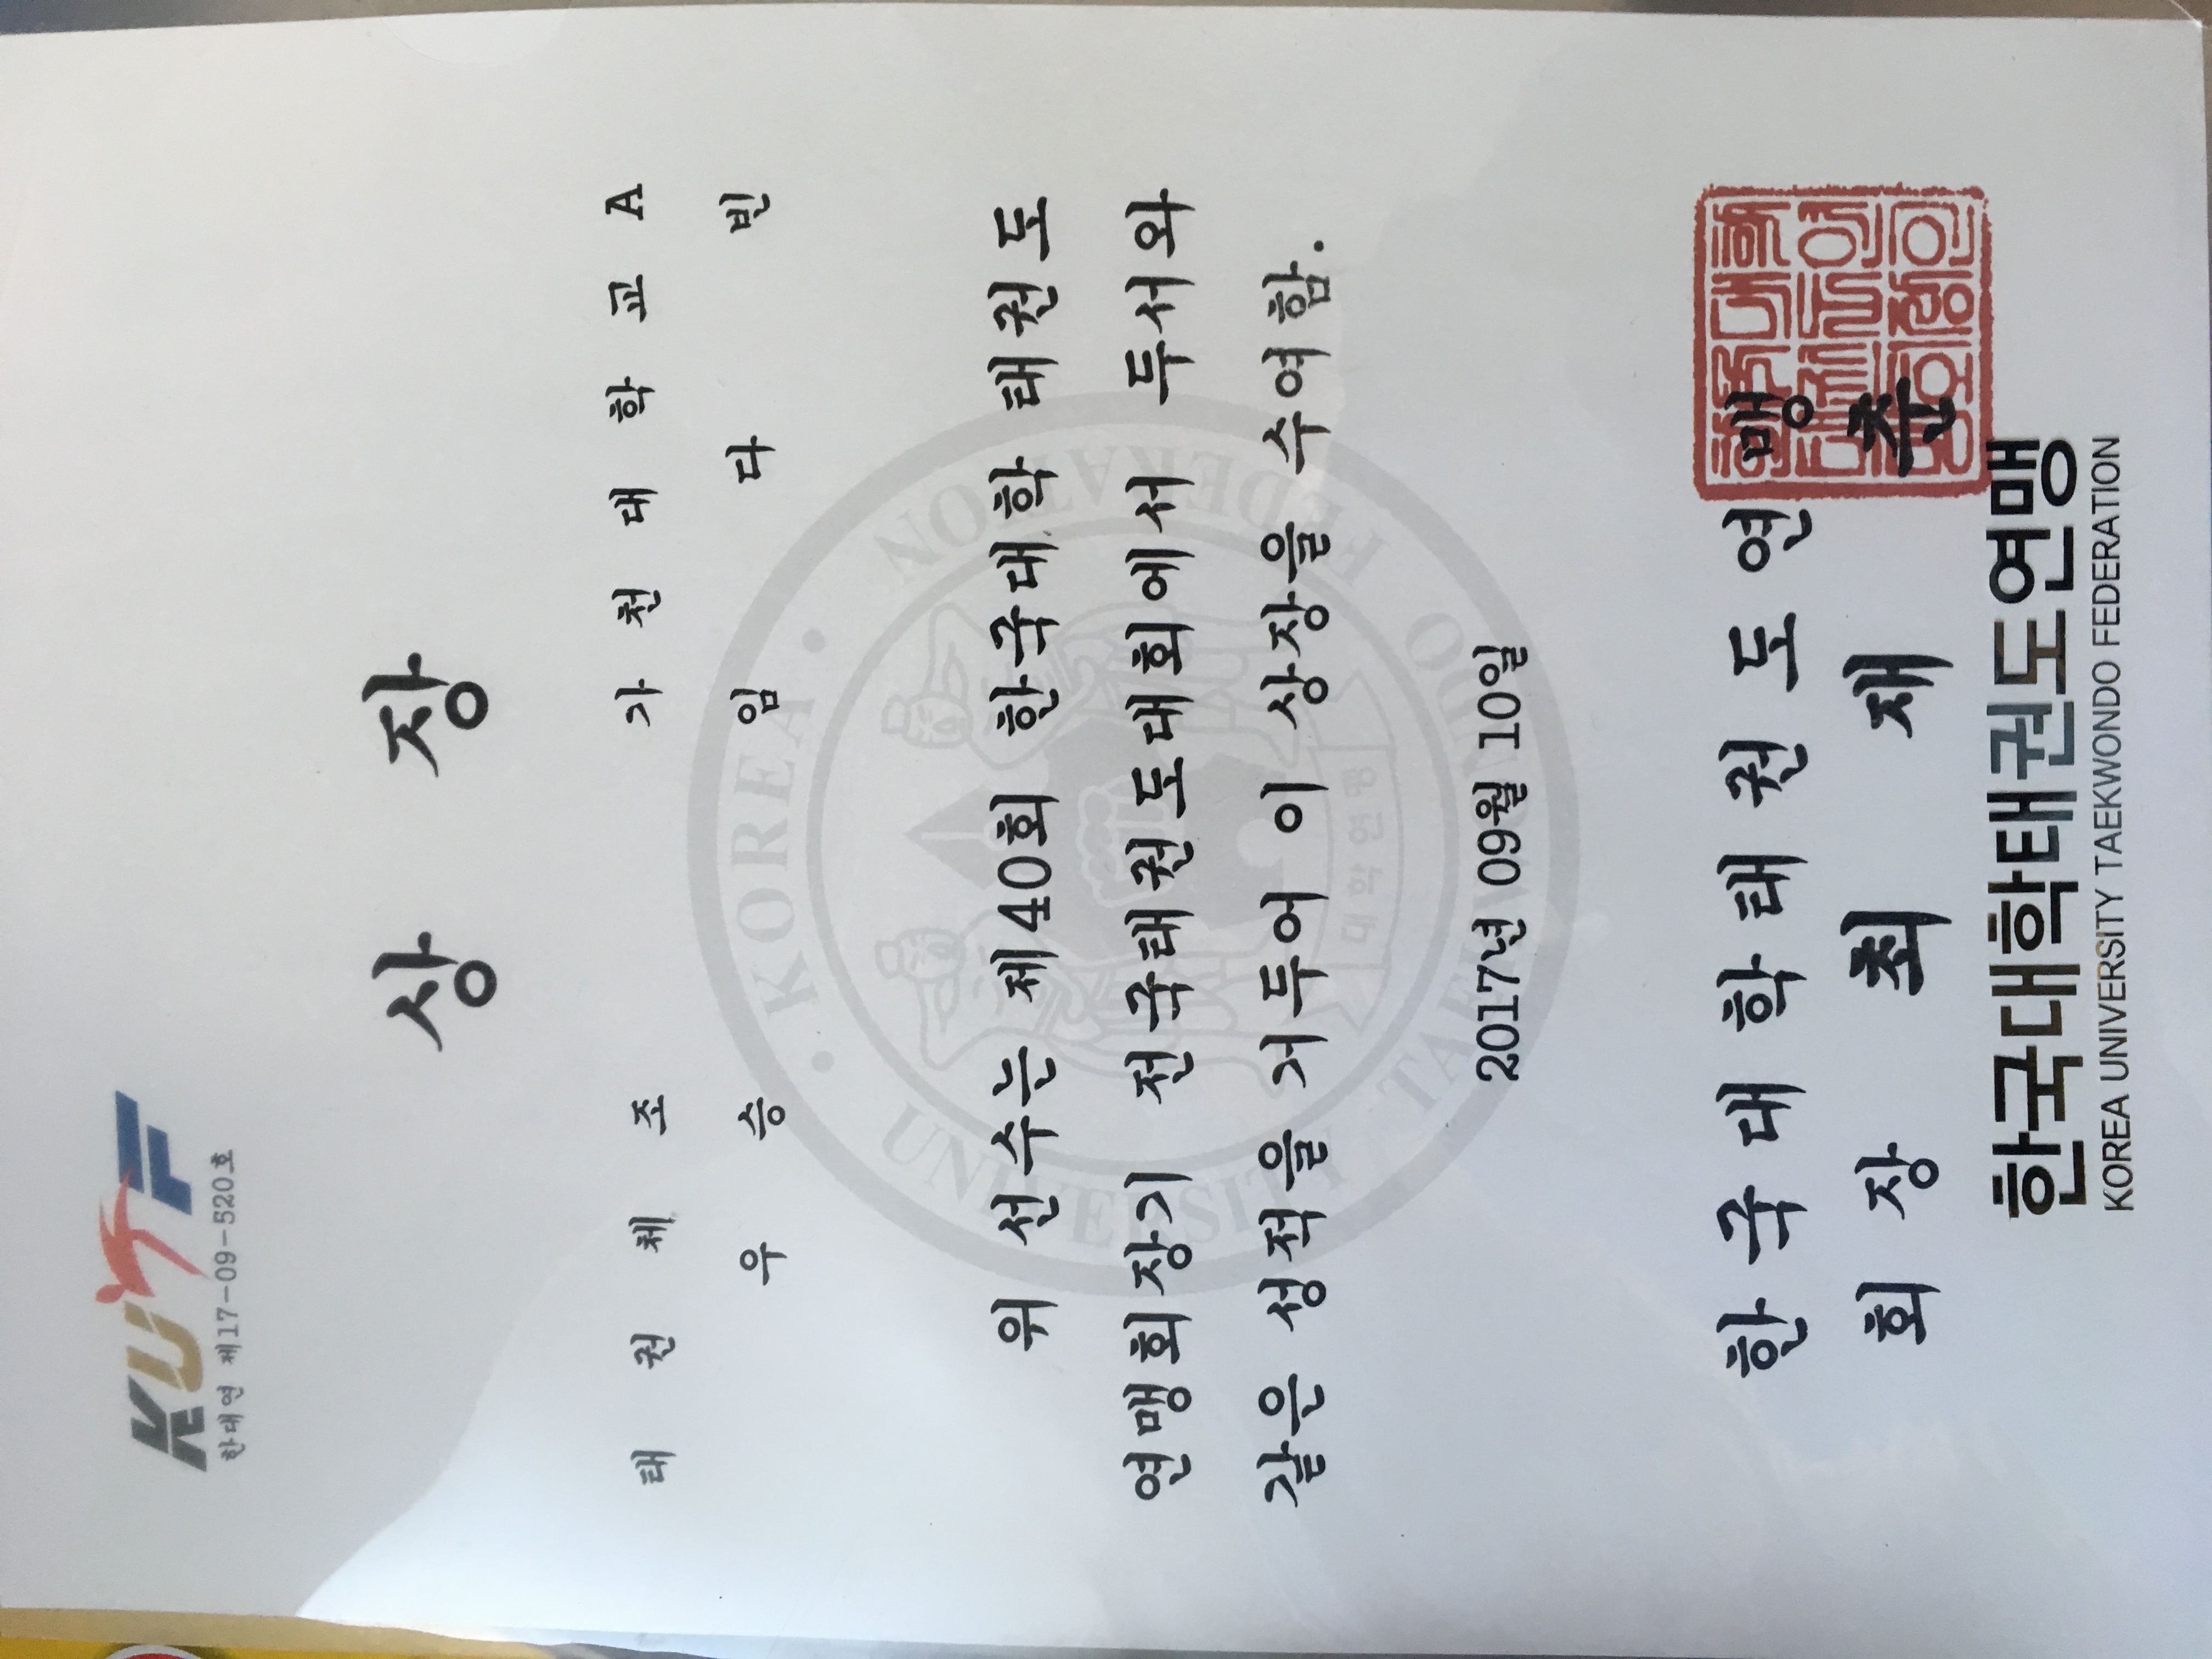 KUTF
한대연 제17-09-520호
상 장
태 권 체 조 가 천 대 학 교 A
우 승 임 다 빈
위 선수는 제40회 한국대학 태권도
연맹회장기 전국태권도대회에서 두서와
같은 성적을 거두어 이 상장을 수여함.
2017년 09월 10일
한 국 대 학 태 권 도 연 맹
회 장 최 재 춘
한국대학태권도연맹
KOREA UNIVERSITY TAEKWONDO FEDERATION
• KOREA •
UNIVERSITY TAEKWONDO FEDERATION
대학연맹